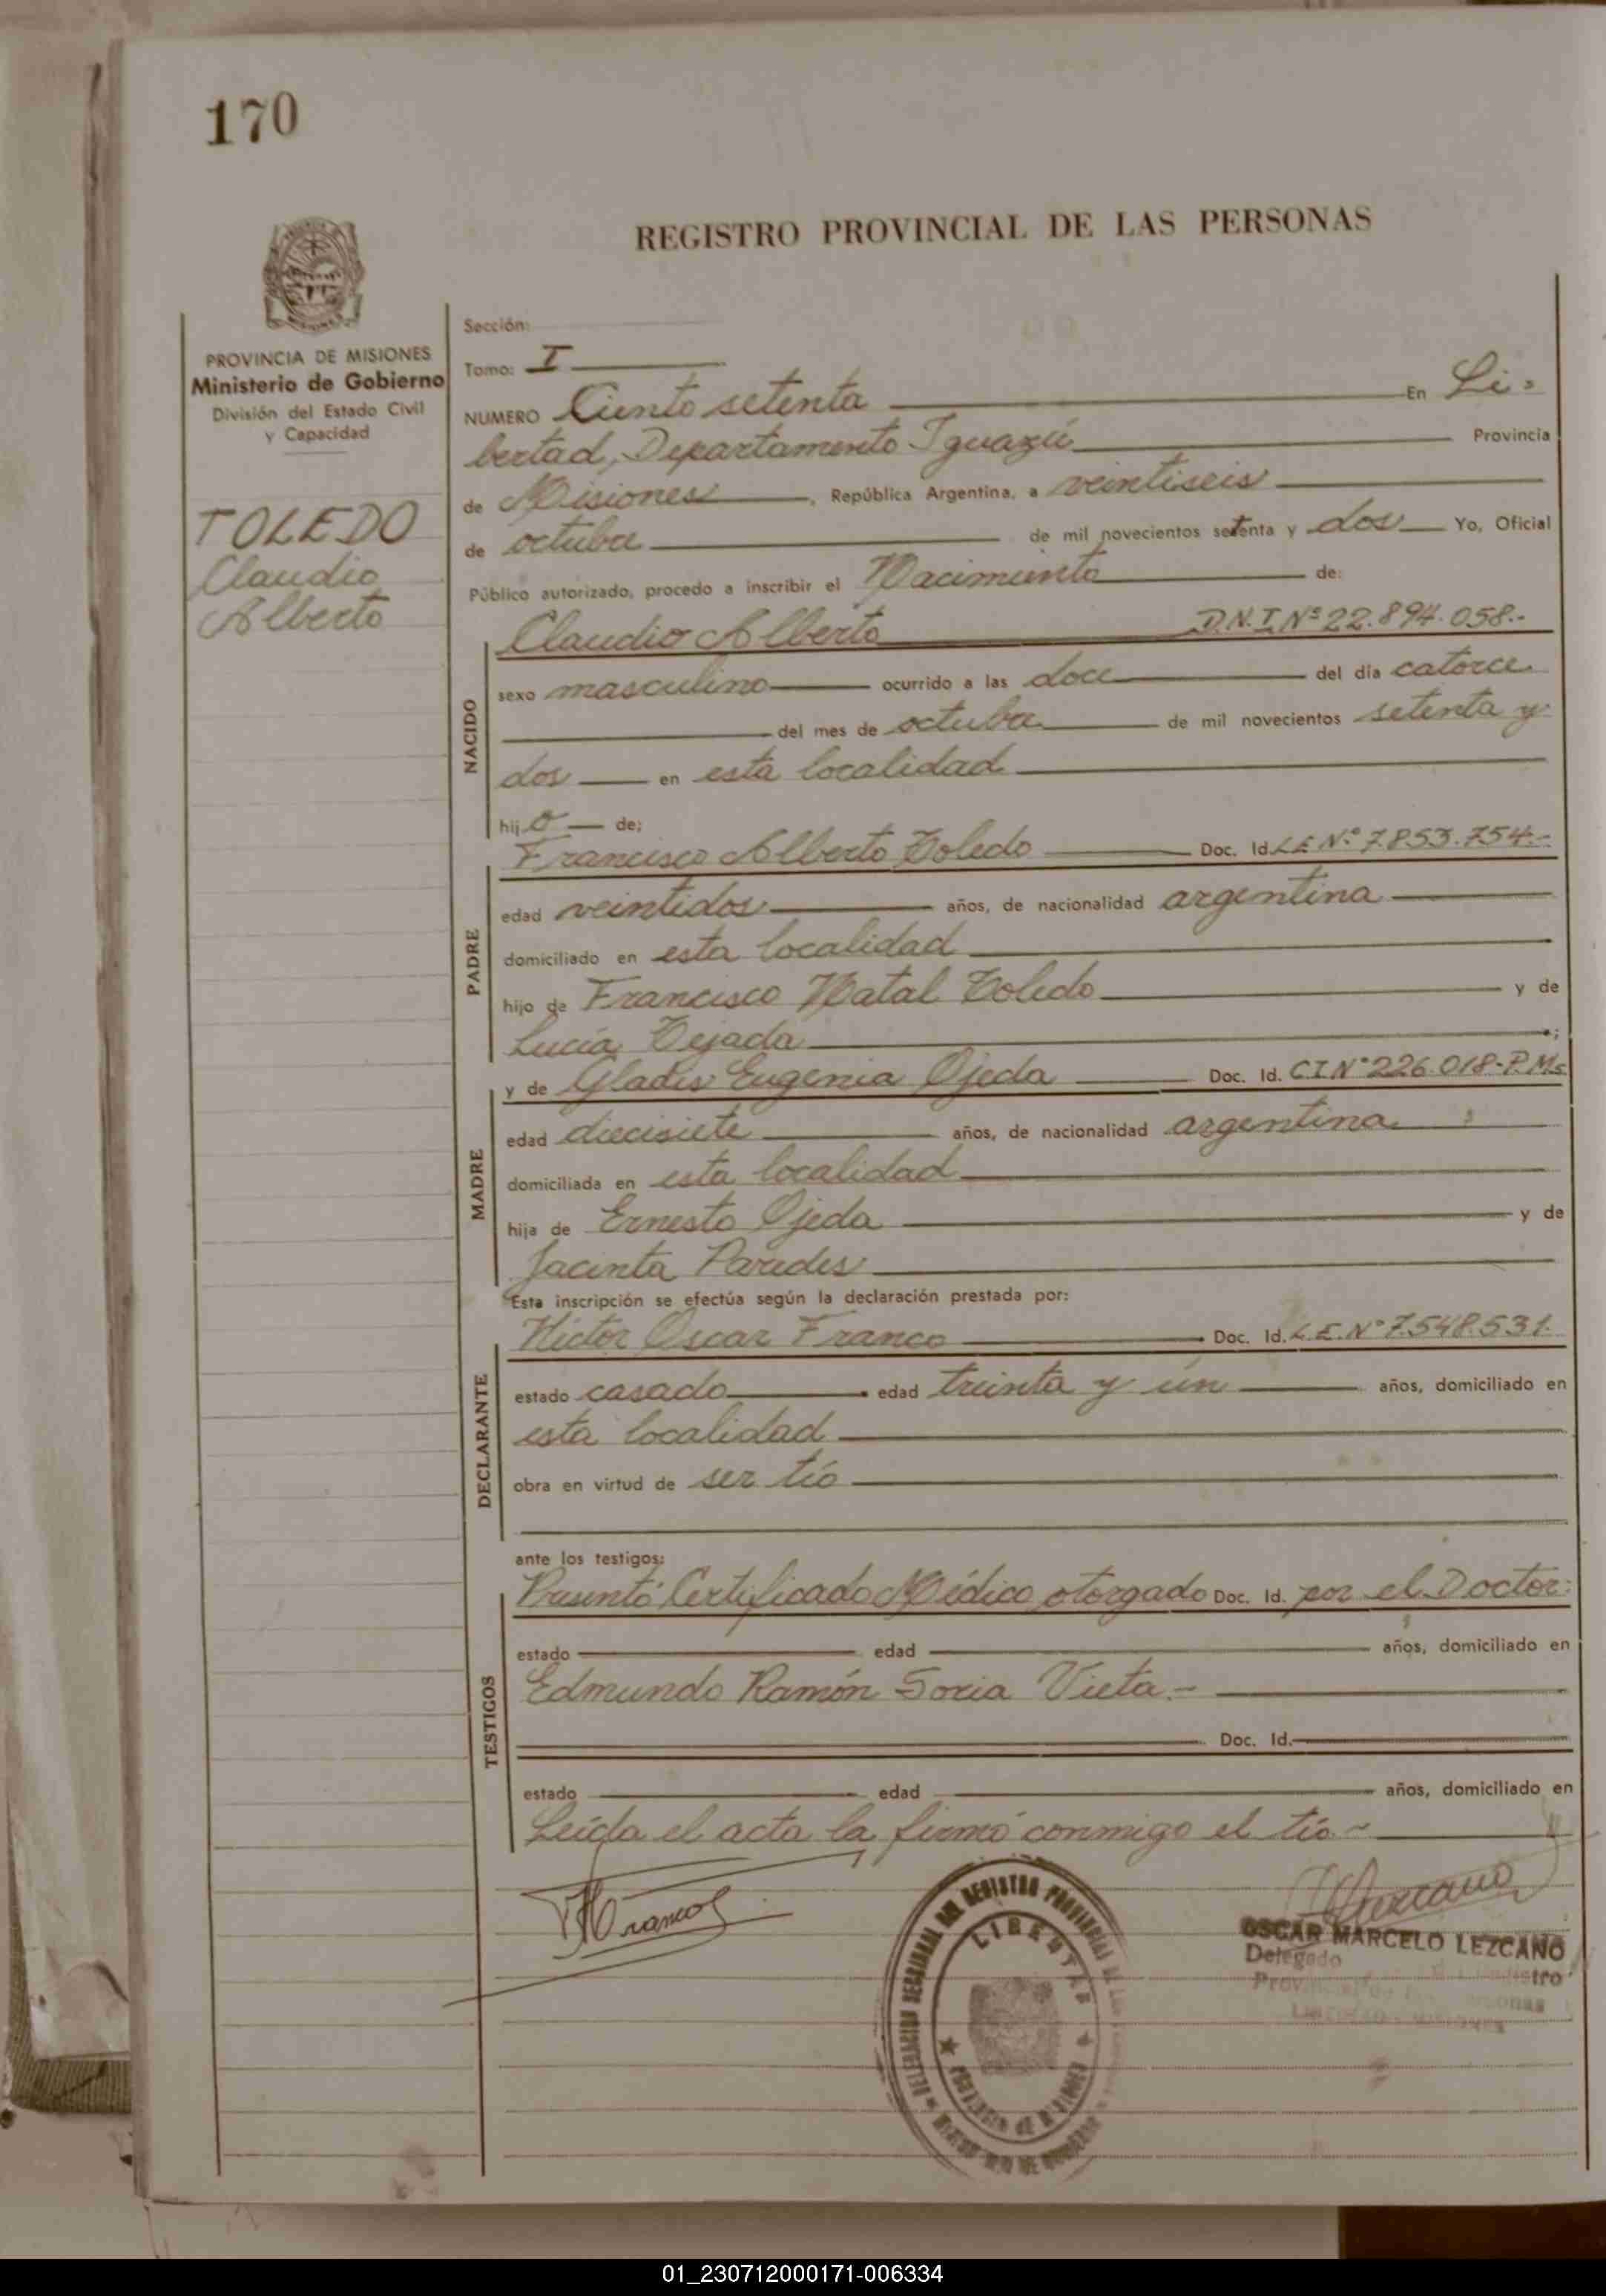 170
REGISTRO PROVINCIAL DE LAS PERSONAS
PROVINCIA DE MISIONES
Ministerio de Gobierno
División del Estado Civil
y Capacidad
TOLEDO
Claudio
Alberto
Sección:
Tomo: I
NUMERO Ciento setenta En Li-
bertad, Departamento Iguazú Provincia
de Misiones, República Argentina, a veintiseis
de octubre de mil novecientos setenta y dos Yo, Oficial
Público autorizado, procedo a inscribir el Nacimiento de:
Claudio Alberto D.N.I. Nº 22.894.058.-
NACIDO
sexo masculino ocurrido a las doce del día catorce
del mes de octubre de mil novecientos setenta y
dos en esta localidad
hijo de;
Francisco Alberto Toledo Doc. Id. L.E. Nº 7.853.754.-
PADRE
edad veintidos años, de nacionalidad argentina
domiciliado en esta localidad
hijo de Francisco Natal Toledo y de
Lucía Tejada ;
y de Gladis Eugenia Ojeda Doc. Id. C.I. Nº 226.018-P.Ms
MADRE
edad diecisiete años, de nacionalidad argentina
domiciliada en esta localidad
hija de Ernesto Ojeda y de
Jacinta Paredes
Esta inscripción se efectúa según la declaración prestada por:
Héctor Oscar Franco Doc. Id. L.E. Nº 7.548.531.
DECLARANTE
estado casado edad treinta y un años, domiciliado en
esta localidad
obra en virtud de ser tío
ante los testigos:
Presentó Certificado Médico otorgado Doc. Id. por el Doctor:
TESTIGOS
estado edad años, domiciliado en
Edmundo Ramón Soria Vieta.-
Doc. Id.
estado edad años, domiciliado en
Leída el acta la firmó conmigo el tío-
DELEGACION REGISTRO PROVINCIAL DE LAS
LIBERTAD
PROVINCIA DE MISIONES
OSCAR MARCELO LEZCANO
Delegado
01_230712000171-006334